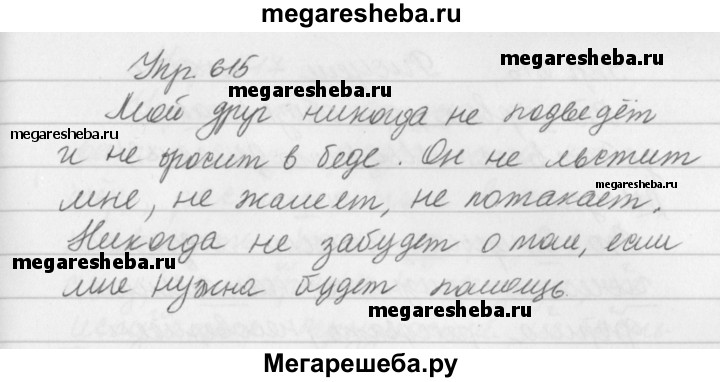 megaresheba.ru
Упр. 615
megaresheba.ru
megaresheba.ru
Мой друг никогда не подведёт
megaresheba.ru
и не бросит в беде. Он не льстит
megaresheba.ru
мне, не жалеет, не потакает.
Никогда не забудет о том, если
megaresheba.ru
мне нужна будет помощь
megaresheba.ru
Мегарешеба.ру